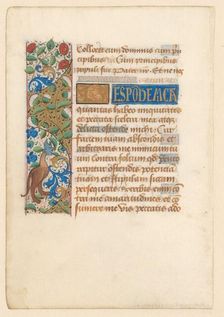 Collocet eum dominus cum prin
cipibus Cum principibus
populi sui
quantas habeo iniquitates
et peccata scelera mea et
delicta ostende michi Cur
faciem tuam abscondis et
arbitraris me inimicum tuum
Contra folium quod vento
rapitur ostendis potentiam
tuam et stipulam siccam
persequeris Scribis enim con
tra me amaritudines et con
sumere me vis peccatis